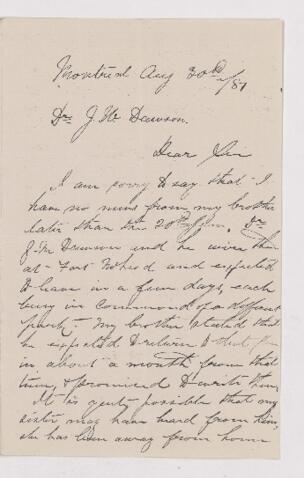 Montreal Aug 30th /87
Dr J. W. Dawson.
Dear Sir
I am sorry to say that I
have no news from my brother
later than the 20th Dr
G. M. Dawson and he were then
at Fort and expected
to leave in a few days, each
being in command of a different
party. My brother stated that
he expected to return to that
in about a month from that
time, & promised to write then,
It is quite possible that my
sister may have heard from him,
she has been away from home